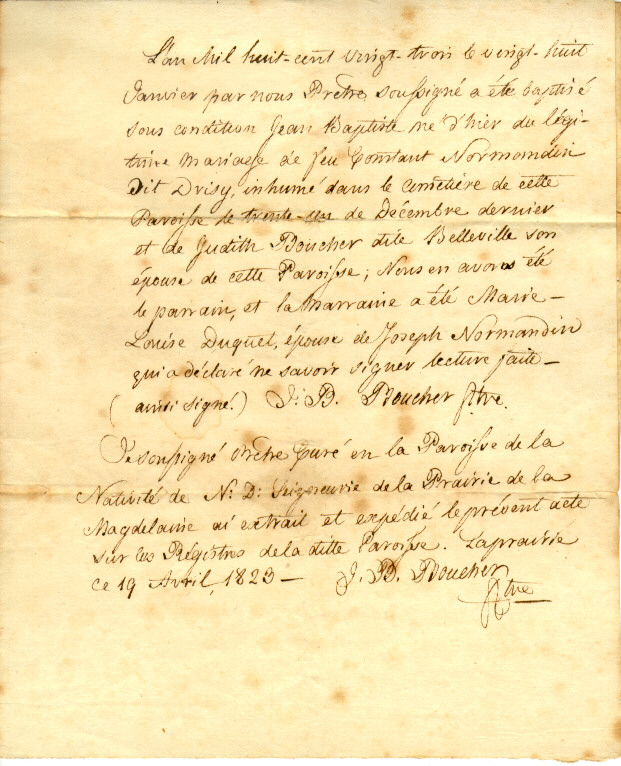 L'an Mil huit-cent vingt-trois le vingt-huit
Janvier par nous Prêtre soussigné a été baptisé
sous condition Jean Baptiste né d'hier du légi-
time mariage de feu Constant Normandin
dit Drisy, inhumé dans le cimetière de cette
Paroisse le trente-un de Décembre dernier
et de Judith Boucher dite Belleville son
épouse de cette Paroisse; Nous en avons été
le parrain, et la marraine a été Marie-
Louise Duquet, épouse de Joseph Normandin
qui a déclaré ne savoir signer lecture faite-
(ainsi signé.) J: B. Boucher Ptre.
Je soussigné Prêtre Curé en la Paroisse de la
Nativité de N: D: Seigneurie de la Prairie de la
Magdelaine ai extrait et expédié le présent acte
sur les Régistres de la ditte Paroisse. Laprairie
ce 19 Avril, 1823- J. B. Boucher
Ptre